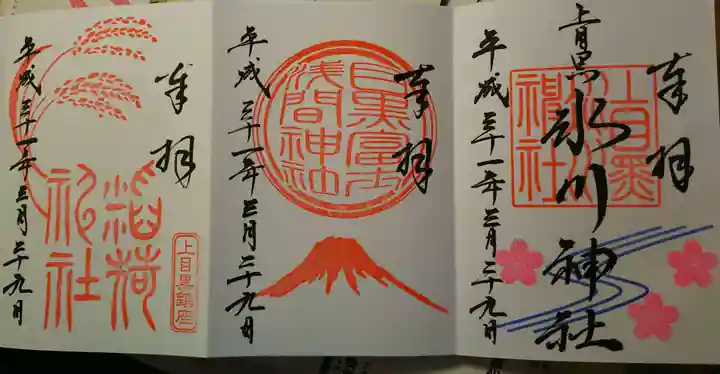 奉拝
上目黒
氷川
神社
上目黒 氷川神社
平成三十一年三月二十九日
奉拝
目黒富士
浅間神社
平成三十一年三月二十九日
奉拝
稲荷
神社
上目黒鎮座
平成三十一年三月二十九日